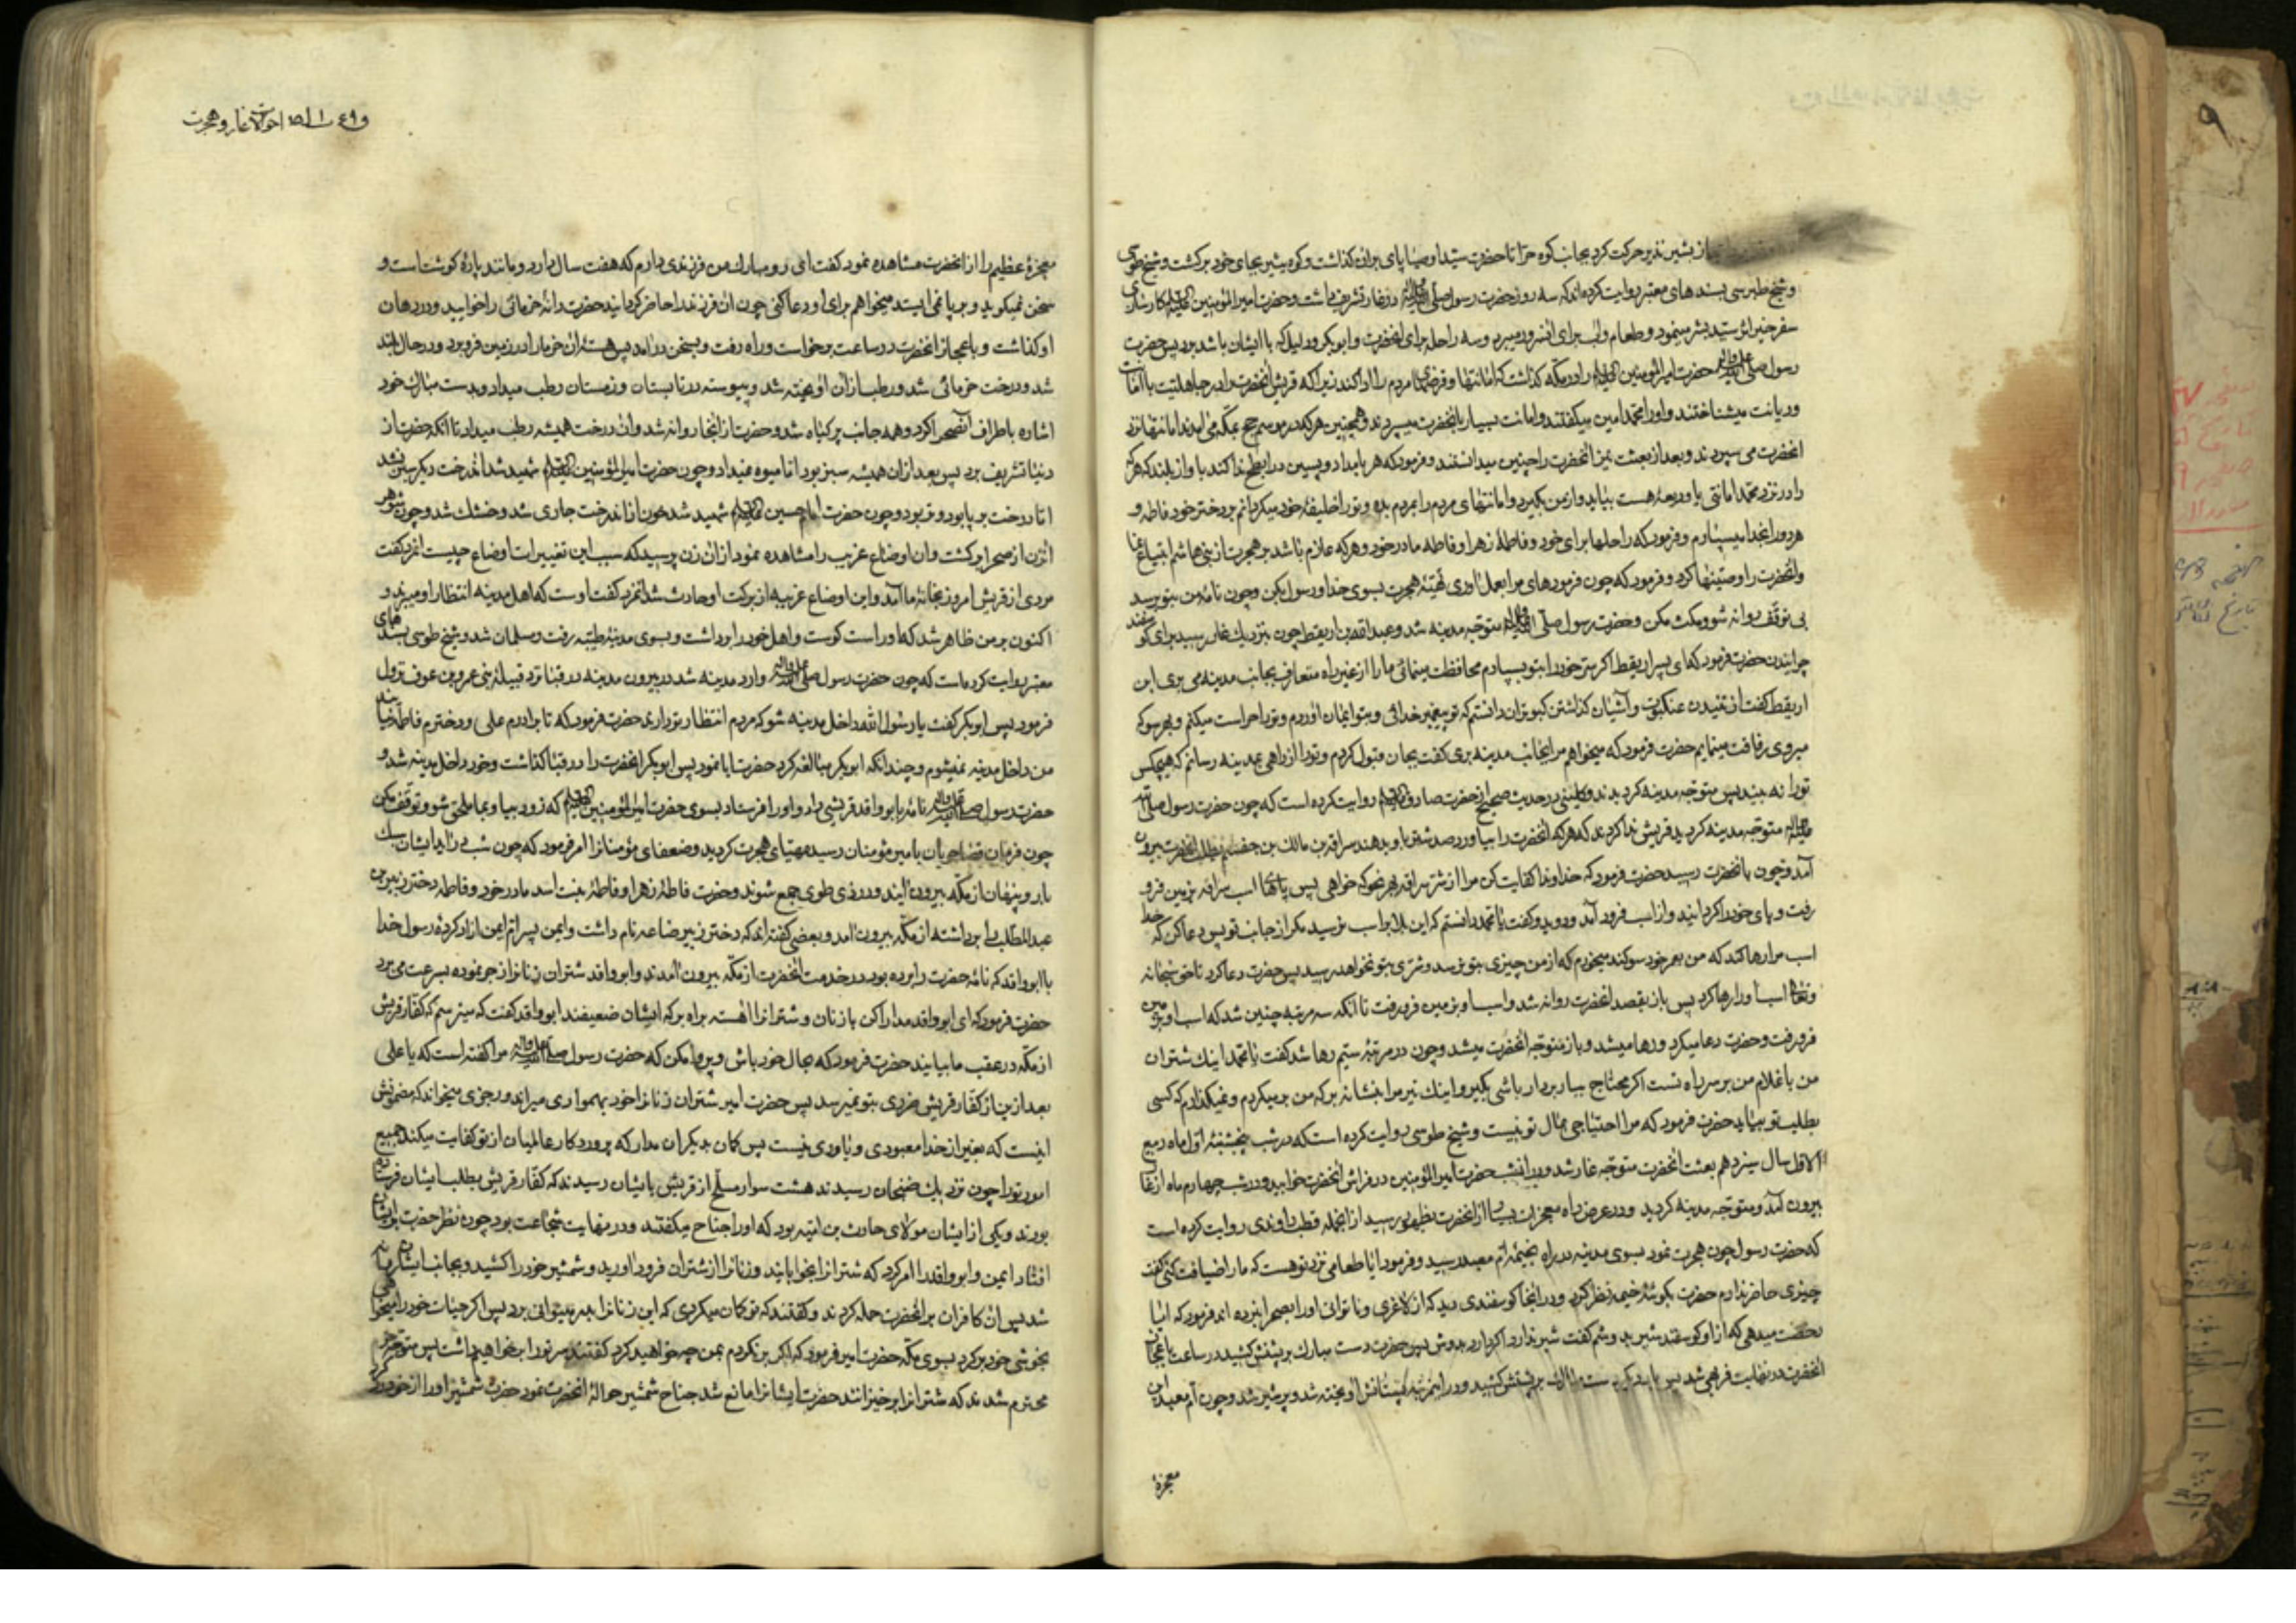 از بشین نذیر حرکت کرد بجانب کوه حرّا تا حضرت سیّد اوصیا پای بران گذاشت و کوه بشیر بجای خود برگشت و شیخ طوسی
و شیخ طبرسی بسندهای معتبر روایت کرده‌اند که سه روز حضرت رسول صلی الله علیه وآله در غار تشریف داشت و حضرت امیرالمؤمنین علیه السلام کارسازی
سفر خیر اثر سیّد بشر مینمود و طعام و آب برای آنسرور میبرد و سه راحله برای آنحضرت و ابوبکر و دلیل که با ایشان باشد برد پس حضرت
رسول صلی الله علیه وآله حضرت امیرالمؤمنین علیه السلام را در مکّه گذاشت که امانتها و قرضهای مردم را ادا کند زیرا که قریش آنحضرت را در جاهلیّت با امانت
و دیانت میشناختند و او را محمد امین میگفتند و امانت بسیار بآنحضرت میسپردند و همچنین هر که در موسم حج بمکّه می‌آمدند امانتها نزد
آنحضرت می سپردند و بعد از بعثت نیز آنحضرت را چنین میدانستند و فرمود که هر بامداد و پسین در ابطح ندا کند باواز بلند که هر که
را در نزد محمد امانتی یا ودیعهٔ هست بیاید و از من بگیرد و امانتهای مردم را بمردم بده و تو را خلیفهٔ خود میگردانم بر دختر خود فاطمه و
هر دو را بخدا میسپارم و فرمود که راحلها برای خود و فاطمهٔ زهرا و فاطمه مادر خود و هر که عازم باشد بر هجرت از بنی هاشم ابتیاع نما
و آنحضرت را وصیّتها کرد و فرمود که چون فرمودهای مرا بعمل آوری تهیّهٔ هجرت بسوی خدا و رسول بکن و چون نامهٔ من بتو برسد
بی توقّف روانه شو و مکث مکن و حضرت رسول صلی الله علیه وآله متوجّه مدینه شد و عبدالله بن اریقط چون بنزدیک غار رسید برای گوسفند
چرانیدن حضرت فرمود که ای پسر اریقط اگر سرّ خود را بتو بسپارم محافظت مینمائی ما را از غیر راه متعارف بجانب مدینه می بری ابن
اریقط گفت از تنیدن عنکبوت و آشیان گذاشتن کبوتران دانستم که تو پیغمبر خدائی و بتو ایمان آوردم و تو را حراست میکنم و بهر سو که
میروی رفاقت مینمایم حضرت فرمود که میخواهم مرا بجانب مدینه بری گفت بجان قبول کردم و تو را از راهی بمدینه رسانم که هیچکس
تو را نه بیند پس متوجّه مدینه گردیدند و کلینی در حدیث صحیح از حضرت صادق علیه السلام روایت کرده است که چون حضرت رسول صلی الله
علیه وآله متوجّه مدینه گردید قریش ندا کردند که هر که آنحضرت را بیاورد صد شتر باو بدهند سراقه بن مالک بن جعشم بطلب آنحضرت بیرون
آمد و چون بآنحضرت رسید حضرت فرمود که خداوندا کفایت کن مرا از شرّ سراقه بهر نحو که خواهی پس پاهای اسب سراقه بزمین فرو
رفت و پای خود را گردانید و از اسب فرود آمد و دوید و گفت یا محمد دانستم که این بلا بر اسب نرسید مگر از جانب تو پس دعا کن که خدا
اسب مرا رها کند که من بعمر خود سوگند میخورم که از من چیزی بتو نرسد و شرّی بتو نخواهد رسید پس حضرت دعا کرد تا حق سبحانه
وتعالی اسب او را رها کرد پس باز بقصد آنحضرت روانه شد و اسب او بزمین فرو رفت تا آنکه سه مرتبه چنین شد که اسب او بزمین
فرو رفت و حضرت دعا میکرد و رها میشد و باز متوجّه آنحضرت میشد و چون در مرتبهٔ سیّم رها شد گفت یا محمد اینک شتران
من با غلام من بر سر راه تست اگر محتاج ببار بردار باشی بگیر و اینک تیر مرا بنشانه بر که من برمیگردم و نمیگذارم که کسی
بطلب تو بیاید حضرت فرمود که مرا احتیاجی بمال تو نیست و شیخ طوسی روایت کرده است که در شب پنجشنبهٔ اوّل ماه ربیع
الاوّل سال سیزدهم بعثت آنحضرت متوجّه غار شد و در آنشب حضرت امیرالمؤمنین در فراش آنحضرت خوابید و در شب چهارم ماه از غار
بیرون آمد و متوجّه مدینه گردید و در عرض راه معجزات بسیار از آنحضرت بظهور رسید از آنجمله قطب راوندی روایت کرده است
که حضرت رسول چون هجرت نمود بسوی مدینه در راه بخیمهٔ امّ معبد رسید و فرمود ایا طعامی نزد تو هست که ما را ضیافت کنی گفت
چیزی حاضر ندارم حضرت بگوشهٔ خیمه نظر کرد و در آنجا گوسفندی دید که از لاغری و ناتوانی او را بصحرا نبرده اند فرمود که ایا
رخصت میدهی که از او گوسفند شیر بدوشم گفت شیر ندارد اگر دارد بدوش پس حضرت دست مبارک بر پشتش کشید در ساعت باعجاز
آنحضرت در نهایت فربهی شد پس بار دیگر دست مبارک بر پشتش کشید و در انمرتبه پستانش آویخته شد و پر شیر شد و چون امّ معبد این
معجزهٔ
احوالات غار و هجرت
معجزهٔ عظیم را از آنحضرت مشاهده نمود گفت ای رو مبارک من فرزندی دارم که هفت سال دارد و مانند پارهٔ گوشت است و
سخن نمیگوید و بر پا نمی ایستد میخواهم برای او دعا کنی چون آن فرزند را حاضر گردانید حضرت دانهٔ خرمائی را خوابید و در دهان
او گذاشت و باعجاز آنحضرت در ساعت برخواست و راه رفت و بسخن درآمد پس هستهٔ آن خرما را در زمین فرو برد و در حال بلند
شد و درخت خرمائی شد و رطب از آن آویخته شد و پیوسته در تابستان و زمستان رطب میداد و بدست مبارک خود
اشاره باطراف آنصحرا کرد و همه جانب پر گیاه شد و حضرت از آنجا روانه شد و آن درخت همیشه رطب میداد تا آنکه حضرت از
دنیا تشریف برد پس بعد از آن همیشه سبز بود اما میوه نمیداد و چون حضرت امیرالمؤمنین علیه السلام شهید شد آندرخت دیگر سبز نشد
امّا درخت بر پا بود و تر بود و چون حضرت امام حسین علیه السلام شهید شد خون از آندرخت جاری شد و خشک شد و چون شوهر
آنزن از صحرا برگشت و آن اوضاع غریب را مشاهده نمود از آن زن پرسید که سبب این تغییرات اوضاع چیست آنزن گفت
مردی از قریش امروز بخانهٔ ما آمد و این اوضاع غریبه از برکت او حادث شد آنمرد گفت اوست که اهل مدینه انتظار او میبرند و
اکنون بر من ظاهر شد که او راست گوست و اهل خود را برداشت و بسوی مدینهٔ طیّبه رفت و مسلمان شد و شیخ طوسی بسندهای
معتبر روایت کرده است که چون حضرت رسول صلی الله علیه وآله وارد مدینه شد در بیرون مدینه در قبا نزد قبیلهٔ بنی عمرو بن عوف نزول
فرمود پس ابوبکر گفت یا رسول الله داخل مدینه شو که مردم انتظار تو دارند حضرت فرمود که تا برادرم علی و دخترم فاطمه نیایند
من داخل مدینه نمیشوم و چندانکه ابوبکر مبالغه کرد حضرت ابا نمود پس ابوبکر آنحضرت را در قبا گذاشت و خود داخل مدینه شد و
حضرت رسول صلی الله علیه وآله نامهٔ بابوواقد قریشی داد و او را فرستاد بسوی حضرت امیرالمؤمنین علیه السلام که زود بیا و بما ملحق شو و توقّف مکن
چون فرمان قضا جریان بامیر مؤمنان رسید مهیّای هجرت گردید و ضعفای مؤمنانرا امر فرمود که چون شب درآید ایشان سبک
بار و پنهان از مکّه بیرون آیند و در ذی طوی جمع شوند و حضرت فاطمهٔ زهرا و فاطمهٔ بنت اسد مادر خود و فاطمه دختر زبیر بن
عبدالمطلب را برداشته از مکّه بیرون آمد و بعضی گفته اند که دختر زبیر ضاعه نام داشت و ایمن پسر امّ ایمن آزاد کردهٔ رسول خدا
با ابوواقد که نامهٔ حضرت را برده بود در خدمت آنحضرت از مکّه بیرون آمدند و ابوواقد شتران زنانرا زجر نموده بسرعت می برد
حضرت فرمود که ای ابوواقد مدارا کن با زنان و شترانرا آهسته براه بر که ایشان ضعیفند ابوواقد گفت که میترسم که کفّار قریش
از مکّه در عقب ما بیایند حضرت فرمود که بحال خود باش و پروا مکن که حضرت رسول صلی الله علیه وآله مرا گفته است که یا علی
بعد از این از کفّار قریش ضرری بتو نمیرسد پس حضرت امیر شتران زنانرا خود بهمواری میراند و رجزی میخواند که مضمونش
اینست که بغیر از خدا معبودی و یاوری نیست پس گمان بدیگران مدار که پروردگار عالمیان از تو کفایت میکند جمیع
امور تو را چون نزدیک ضجنان رسیدند هشت سوار مسلّح از قریش بایشان رسیدند که کفّار قریش بطلب ایشان فرستاده
بودند و یکی از ایشان مولای حارث بن امیّه بود که او را جناح میگفتند و در نهایت شجاعت بود چون نظر حضرت بر ایشان
افتاد ایمن و ابوواقد را امر کرد که شترانرا بخوابانید و زنانرا از شتران فرود آورید و شمشیر خود را کشید و بجانب ایشان روانه
شد پس آن کافران بر آنحضرت حمله کردند و گفتند که تو گمان میکردی که این زنانرا بدر میتوانی برد پس اگر حیات خود را میخواهی
بخوشی خود برگرد بسوی مکّه حضرت امیر فرمود که اگر برنگردم بمن چه خواهید کرد گفتند سر تو را بر خواهیم داشت پس متوجّه
محترم شدند که شترانرا برخیزانند حضرت ایشانرا مانع شد جناح شمشیر حوالهٔ آنحضرت نمود حضرت شمشیر او را از خود رد کرد